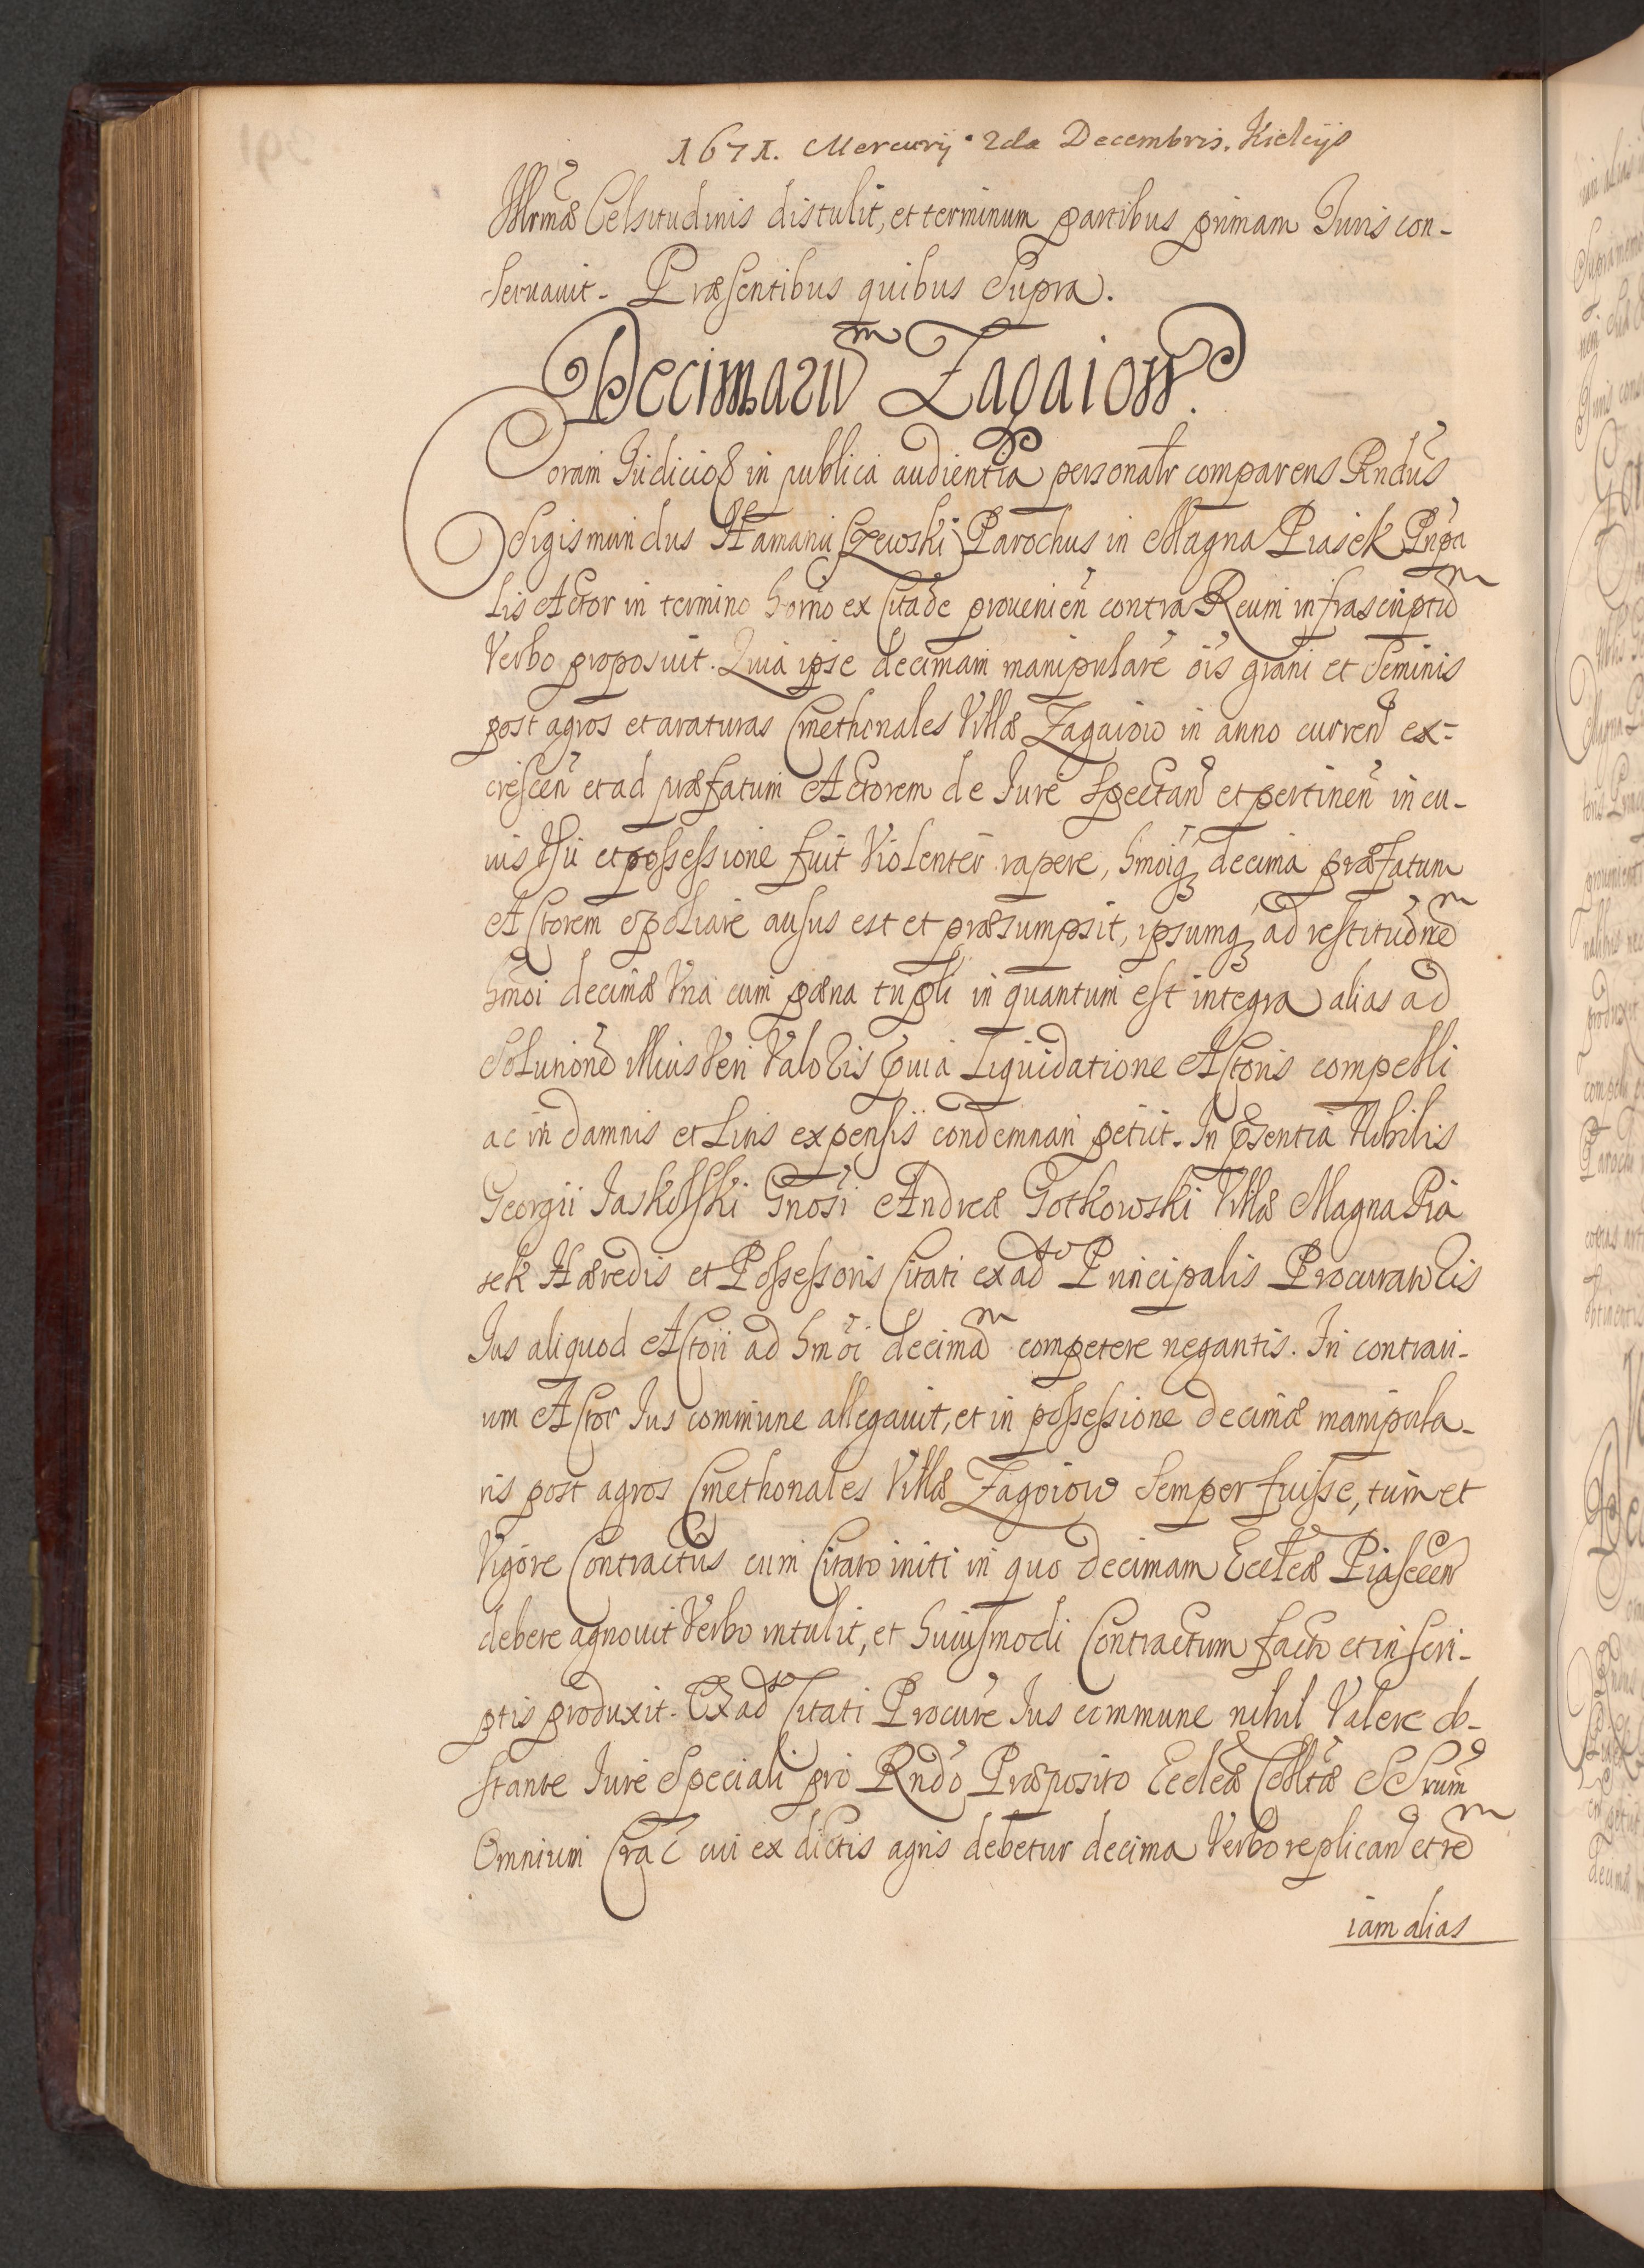 1671. Mercurij 2da Decembris. Kielcijs
Illrmæ Celsitudinis distulit, et terminum partibus primam Juris con-
servavit. Præsentibus quibus Supra.
Decimarum Zagaiow.
Coram Judicio in publica audientia personalr comparens Rndus
Sigismundus Parochus in Magna Piasek Prnpa
lis Actor in termino horno ex Citaõe provenieñ contra Reum infrascriptum
Verbo proposuit. Quia ipse decimam manipularē oīs grani et Seminis
post agros et araturas Cmethonales Villæ Zagaiow in anno curreñ ex=
cresceñ et ad præfatum Actorem de Jure spectañ et pertineñ in cu-
ius Usu et possessione fuit Violenter rapere, hmōiq decima præfatum
Actorem spoliare ausus est et præsumpsit, ipsumq ad restitutionem
hmōi decimæ Una cum pœna tripli in quantum est integra alias ad
Solutionem illius Veri Valoris prævia Liquidatione Actoris compelli
ac in damnis et Litis expensis condemnari petiit. In Præsentia Nobilis
Georgii Jaskolski Gnosi Andreæ Gotkowski Villæ Magna Pia
sek Hæredis et Possessoris Citati ex adso Principalis Procuratoris
Jus aliquod Actori ad hmōi decimam competere negantis. In contrari-
um Actor Jus commune allegavit, et in possessione decimæ manipula-
ris post agros Cmethonales Villæ Zagoiow Semper fuisse, tum et
Vigore Contractus cum Citato initi in quo decimam Eccleæ Piasecen
debere agnovit Verbo intulit, et huiusmodi Contractum facto et in scri-
ptis produxit. Ex adso Citati Procure Jus commune nihil Valere ob-
stante Jure Speciali pro Rndo Præposito Eccleæ Colltæ SSrum
Omnium Crac cui ex dictis agris debetur decima Verbo replicañ et rem
iam alias